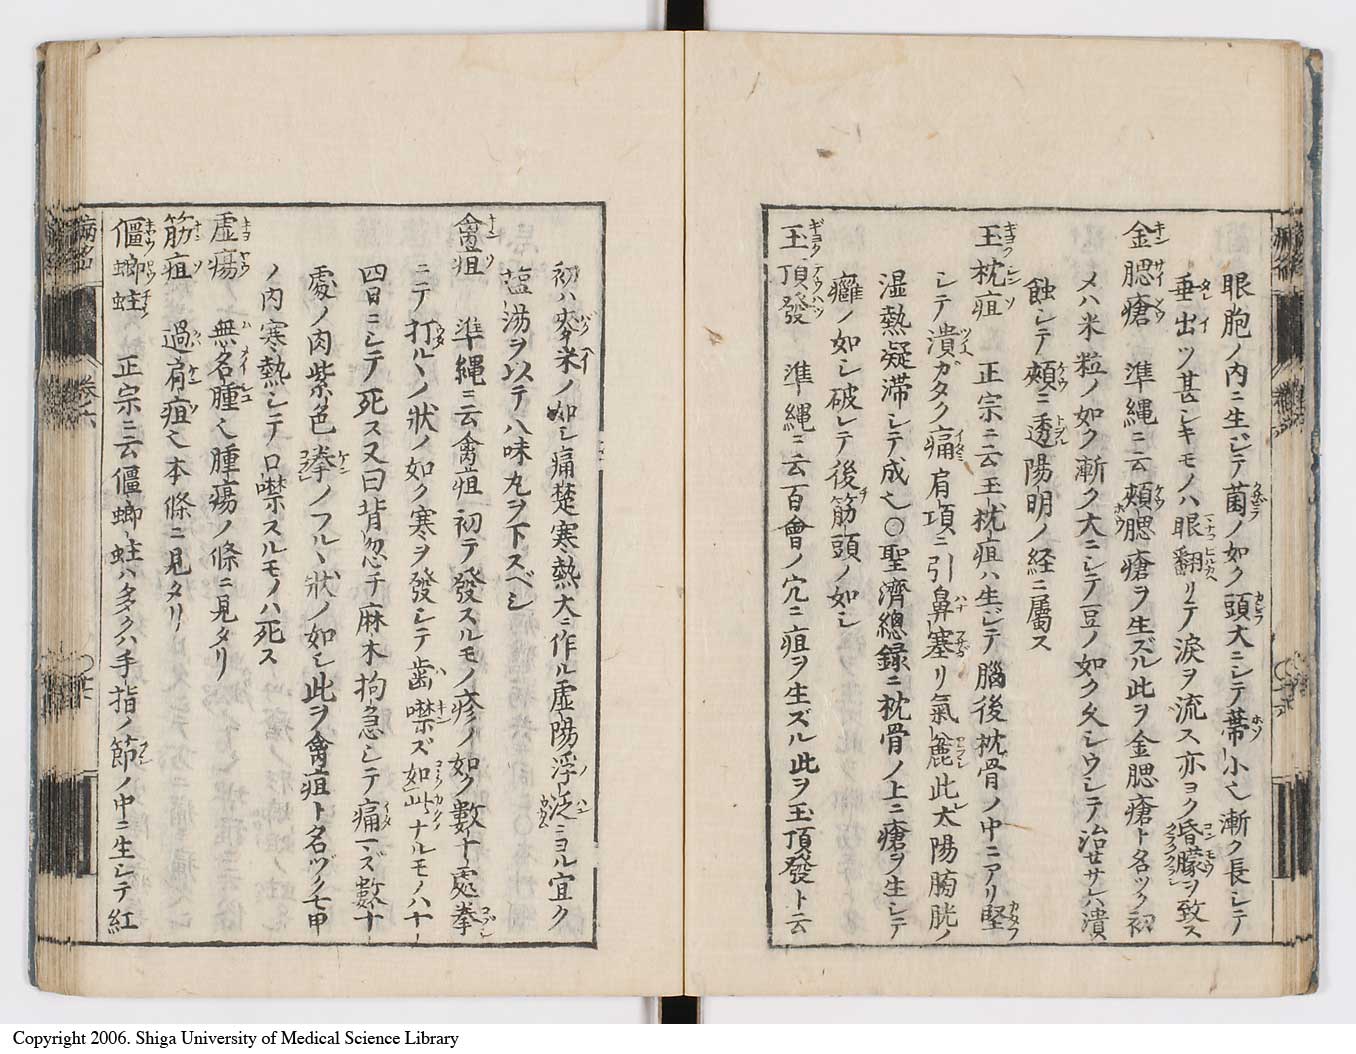 眼胞ノ内ニ生ジテ菌ノ如ク頭大ニシテ蔕小也漸ク長シテ
垂出ツ甚シキモノハ眼翻リテ涙ヲ流ス亦ヨク昏矇ヲ致ス
金腮瘡 準縄ニ云頬腮瘡ヲ生ズル此ヲ金腮瘡ト名ツク初
メハ米粒ノ如ク漸ク大ニシテ豆ノ如ク久シウシテ治セサレハ潰
蝕シテ頬ニ透陽明ノ経ニ屬ス
玉枕疽 正宗ニ云玉枕疽ハ生ジテ腦後枕骨ノ中ニアリ堅
シテ潰ガタク痛肩項ニ引鼻塞リ氣麁此太陽膀胱ノ
湿熱疑滞シテ成也○聖濟總録ニ枕骨ノ上ニ瘡ヲ生シテ
癰ノ如シ破レテ後筋頭ノ如シ
玉頂發 準縄ニ云百會ノ穴ニ疽ヲ生ズル此ヲ玉頂發ト云
初ハ麥米ノ如シ痛楚寒熱大ニ作ル虚陽浮泛ニヨル宜ク
塩湯ヲ以テ八味丸ヲ下スベシ
禽疽 準縄ニ云禽疽初テ發スルモノ疹ノ如ク數十處拳
ニテ打ルヽノ状ノ如ク寒ヲ發シテ歯噤ズ如此ナルモノハ十
四日ニシテ死ス又曰背忽チ麻木拘急シテ痛マズ數十
處ノ肉紫色拳ノフルヽ状ノ如シ此ヲ禽疽ト名ヅク七日
ノ内寒熱シテ口噤スルモノハ死ス
虚瘍 無名腫也腫瘍ノ條ニ見タリ
筋疽 過肩疽也本條ニ見タリ
傴螂蛀 正宗ニ云傴螂蛀ハ多クハ手指ノ節ノ中ニ生シテ紅
病名
巻六
Copyright 2006. Shiga University of Medical Science Library